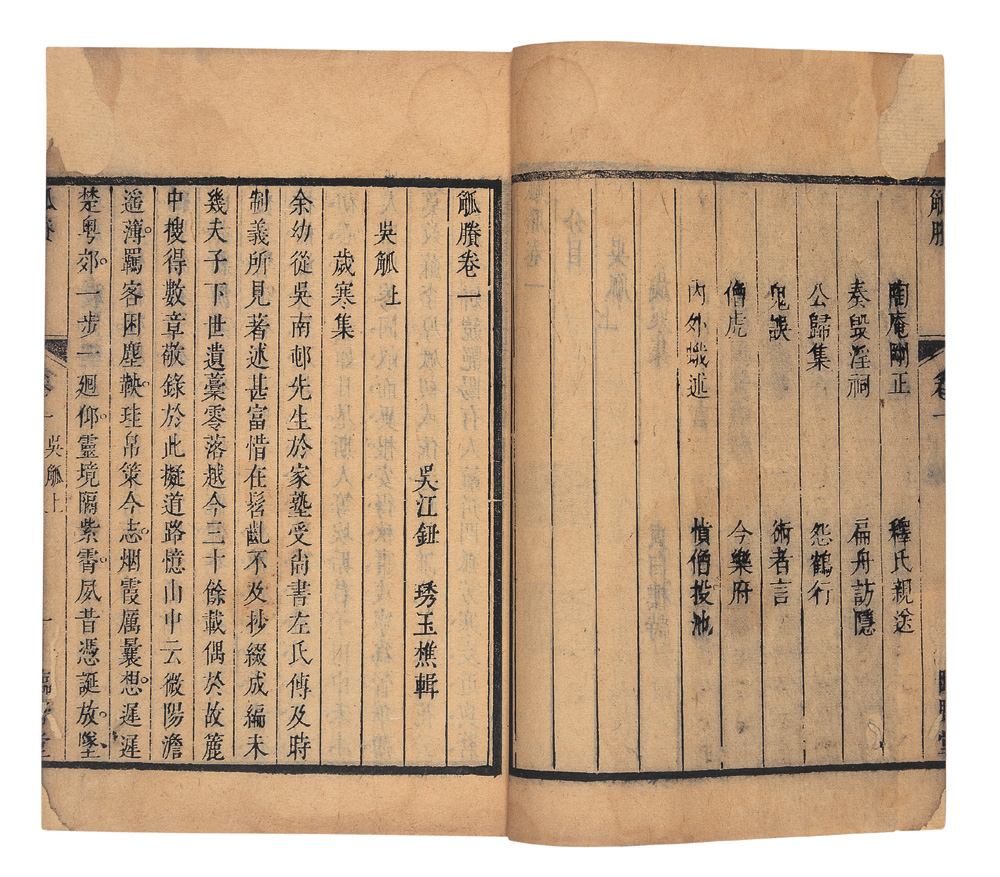 觚賸
卷一
臨野堂
陶庵剛正　釋氏親迎
奏毀淫祠　扁舟訪隱
公歸集　怨鶴行
鬼誤　術者言
僧虎　今樂府
內外戒述　憤僧投池
觚賸卷一
吳江鈕　琇玉樵輯
吳觚上
歲寒集
余幼從吳南邨先生於家塾受尚書左氏傳及時
制義所見著述甚富惜在髫齔不及抄綴成編未
幾夫子下世遺稾零落越今三十餘載偶於故簏
中搜得數章敬錄於此擬道路憶山中云微陽澹
遥薄羈客困塵軼珪帛策今志烟霞厲曩想遲遲
楚粤郊一步一廻仰靈境隔紫霄夙昔憑誕放墜
觚賸
卷一
吳觚上
一
臨野堂